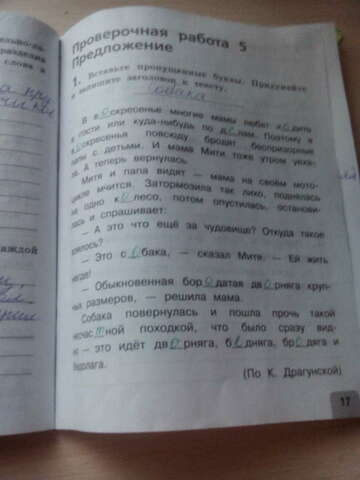 Проверочная работа 5
Предложение
1. Вставьте пропущенные буквы. Придумайте
и запишите заголовок к тексту.
Собака
В воскресенье многие мамы любят ходить
в гости или куда-нибудь по делам. Поэтому в
воскресенья повсюду бродят беспризорные
папы с детьми. И мама Мити тоже утром уеха-
ла. А теперь вернулась.
Митя и папа видят — мама на своём мото-
цикле мчится. Затормозила так лихо, поднялась
на одно колесо, потом опустилась, останови-
лась и спрашивает:
— А это что ещё за чудовище? Откуда такое
взялось?
— Это собака, — сказал Митя. — Ей жить
негде!
— Обыкновенная бородатая дворняга круп-
ных размеров, — решила мама.
Собака повернулась и пошла прочь такой
несчастной походкой, что было сразу вид-
но — это идёт дворняга, бедняга, бродяга и
берлага.
(По К. Драгунской)
17